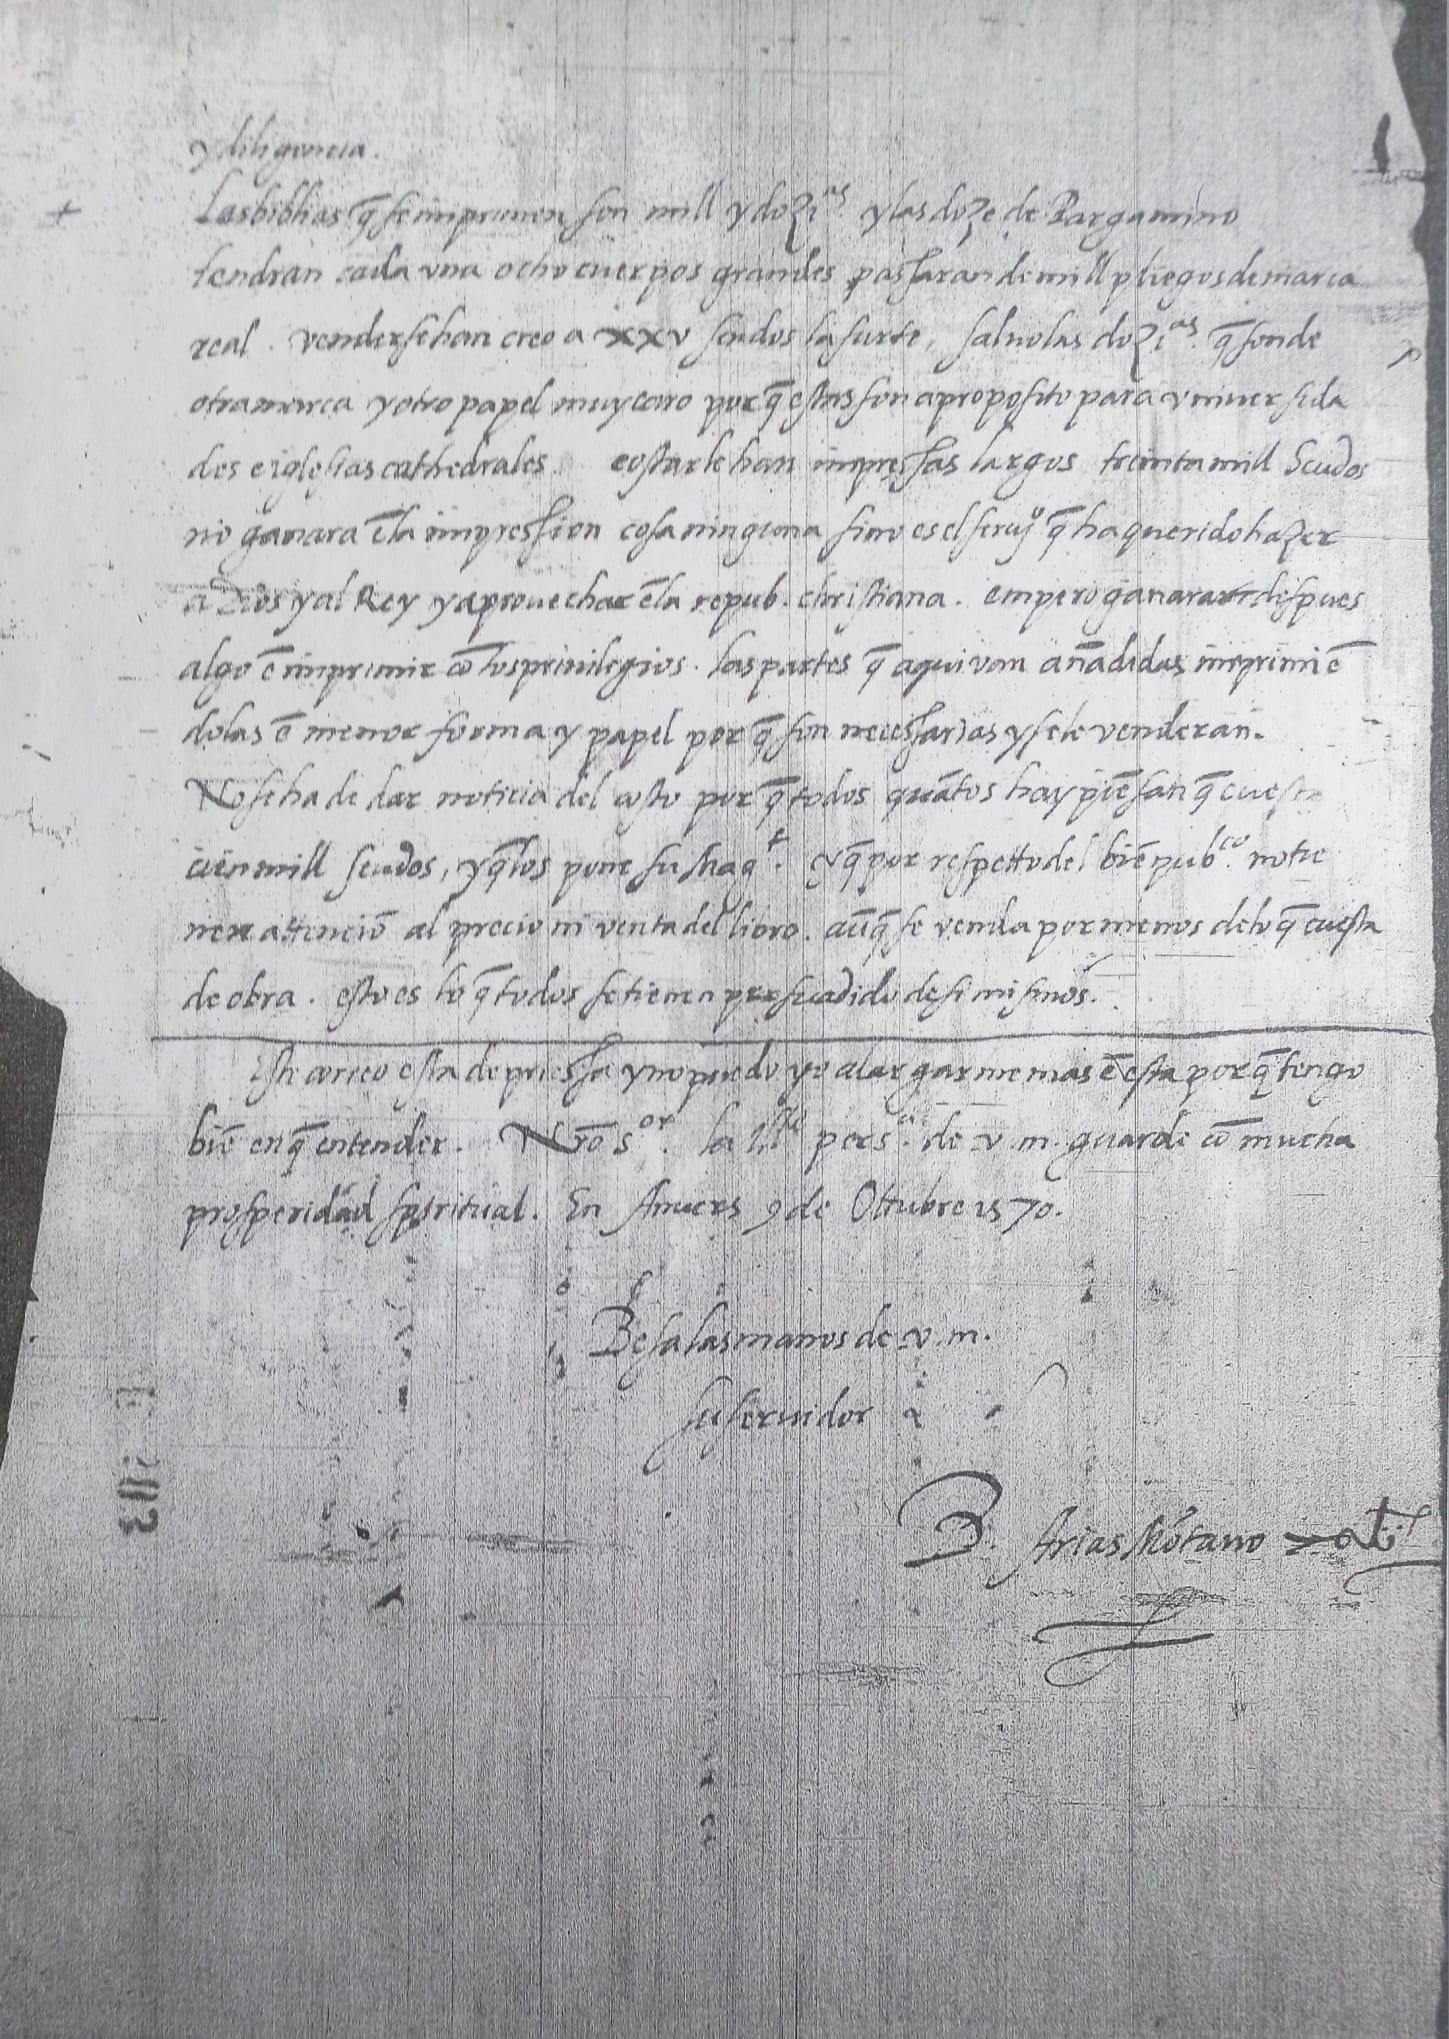 y diligencia.
Las biblias q̃ se imprimen son mill y dozi.as y las doze de Pargamino
tendran cada vna ocho cuerpos grandes passaran de mill pliegos de marca
real. vender se han creo a xxv scudos la suerte, saluo las dozi.as q̃ son de
otra marca y otro papel muy caro por q̃ estas son a proposito para vniuersida
des e iglesias cathedrales. costarle han impressas largos treinta mill Scudos
no ganara ẽ la impression cosa ninguna sino es el seruiº q̃ ha querido hazer
a Dios y al Rey y aprouechar ẽ la repub. christiana. empero ganara despues
algo ẽ imprimir cõ los priuilegios. las partes q̃ aqui van añadidas imprimiẽ
dolas ẽ menor forma y papel por q̃ son necessarias y se le venderan.
No se ha de dar noticia del costo por q̃ todos quãtos hay piẽsan q̃ cuesta
cien mill scudos, y q̃ los pone su Magt. y q̃ por respetto del biẽ pubco. no tie
nen attenciõ al precio ni venta del libro. aũq̃ se venda por menos de lo q̃ cuesta
de obra. esto es lo q̃ todos se tienen persuadido de si mismos.
Este correo esta de priessa y no puedo yo alargarme mas ẽ esta por q̃ tengo
biẽ en q̃ entender. Nr̃o sor. la Ille pers.a de v. m. guarde cõ mucha
prosperidad spiritual. En Anuers 9 de Ottubre 1570.
Besa las manos de v. m.
su seruidor
B. Arias Mõtano